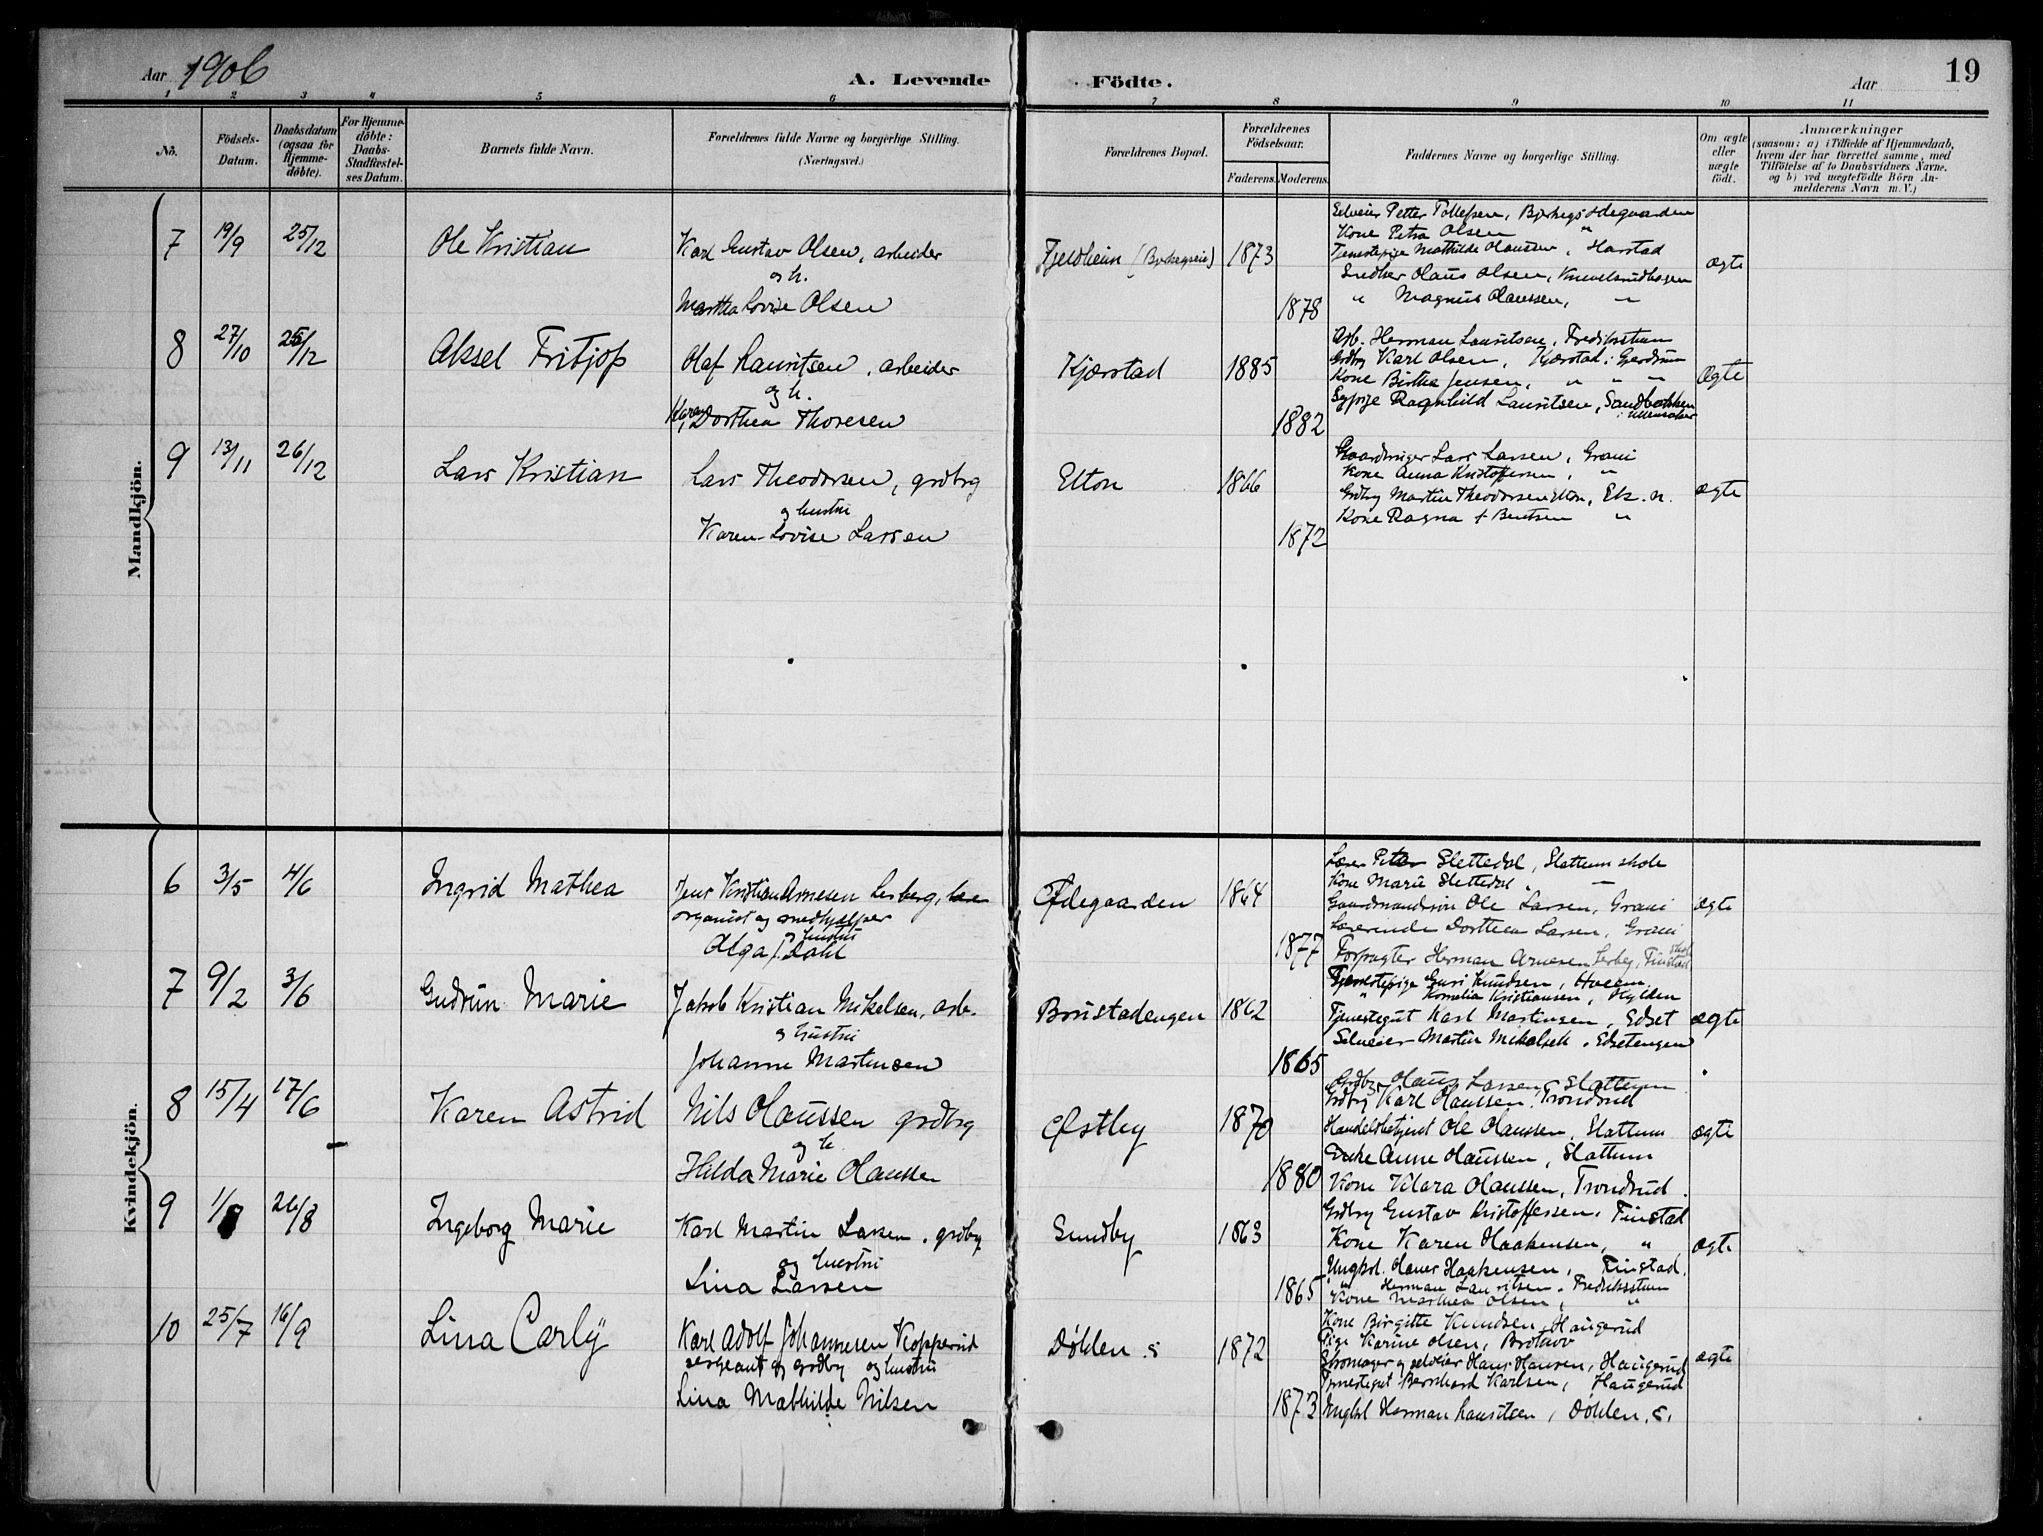 Aar 1906
A. Levende Födte.
Aar 19
1 2 3 4 5 6 7 8 9 10 11
No.
Födsels-Datum.
Daabsdatum (ogsaa for Hjemme-döbte).
For Hjemme-döbte: Daabs-Stadfæstel-ses Datum.
Barnets fulde Navn.
Forældrenes fulde Navne og borgerlige Stilling.
(Næringsvei.)
Forældrenes Bopæl.
Forældrenes Födselsaar.
Faderens. Moderens.
Faddernes Navne og borgerlige Stilling.
Om ægte eller uægte födt.
Anmærkninger
(saasom: a) i Tilfælde af Hjemmedaab, hvem der har forrettet samme, med Tilföielse af to Daabsvidners Navne. og b) ved uægtefödte Börn An-melderens Navn m. V.)
Mandkjön.
7 19/9 25/12 Ole Kristian
Karl Gustav Olsen, arbeider
og h.
Martha Lovise Olsen
Fjeldheim 1873
1878
Selveier Petter Tollefsen, Bjerkegsødegaarden
Kone Petra Olsen "
Tjenestepige Mathilde Olaussen, Harstad
Snedker Olaus Olsen, Knevelsrudhagen
" Magnus Olaussen, "
ægte
8 27/10 25/12 Aksel Fritjof
Olaf Lauritsen, arbeider
og h.
Karen Dorthea Thoresen
Kjærstad 1885
1882
Arb. Herman Lauritsen, Fredikstrum
Grdbr Karl Olsen, Kjærstad i Gjerdrum
Kone Birthe Jensen, " " "
Sypige Ragnhild Lauritsen, Sandbakken
i Ullensaker
Ægte
9 13/11 26/12 Lars Kristian
Lars Theodorsen, grdbrg
og hustru
Karen Lovise Larsen
Elton 1866
1872
Gaardbruger Lars Larsen, Grani
Kone Anna Kristoffersen, "
Grdbrg Martin Theodorsen Elton, Elt. n.
Kone Ragna Bentsen "
ægte
Kvindekjön.
6 3/5 4/6 Ingrid Mathea
Jens Kristian Arnesen Lerberg, lærer
organist og
og hustru
Olga J. Dahl
Ødegaarden 1864
1877
Lærer Petter Slettedal, Slattum skole
Kone Marie Slettedal, "
Gaardmandssøn Ole Larsen, Grani
Lærerinde Dorthea Larsen, Grani
Forpagter Herman Arnesen Lerberg, Tinstad
ægte
7 9/2 3/6 Gudrun Marie
Jakob Kristian Mikelsen, arb.
og hustru
Johanne Martinsen
Brustadengen 1862
1865
Tjenestepige Guri Knudsen, Hveem.
" Kornelia Kristiansen, Kylden
Tjenestegut Karl Martinsen, Edset
Selveier Martin Mikelsen, Edsetengen
ægte
8 15/4 17/6 Karen Astrid
Nils Olaussen grdbrg
og h.
Hilda Marie Olaussen
Østby 1870
1880
Grdbr. Olaus Larsen, Slattum
Grdbrg Karl Olaussen, Trondrud
Handelsbetjent Ole Olaussen, Slattum
Enke Anne Olaussen, Slattum
Kone Klara Olaussen, Trondrud.
ægte
9 1/8 26/8 Ingeborg Marie
Karl Martin Larsen, grdbrg
og hustru
Lina Larsen
Sundby 1863
1865
Grdbrg Gustav Kristoffersen, Tinstad
Kone Karen Haakensen, "
Ungkrl. Olaves Haakensen, Tinstad.
" Herman Lauritsen, Fredikstrum
Kone Mathea Olsen, "
ægte
10 25/7 16/9 Lina Carly
Karl Adolf Johannesen Kopperud
sergeant og grdbrg og hustru
Lina Mathilde Nilsen
Døhlen s 1872
1873
Kone Birgitte Knudsen, Haugerud
Pige Karine Olsen, Brotnov
Skomager og selveier Hans Hansen, Haugerud
Tjenestegut Bernhard Karlsen, Haugerud
Ungkrl Herman Lauritsen, Døhlen, s.
ægte